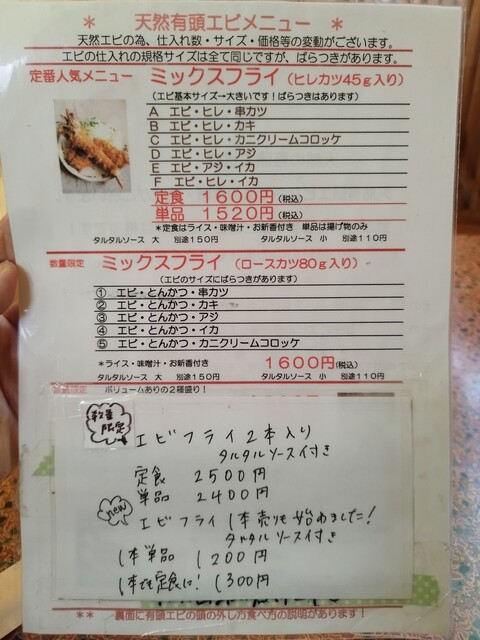 * 天然有頭エビメニュー *
天然エビの為、仕入れ数・サイズ・価格等の変動がございます。
エビの仕入れの規格サイズは全て同じですが、ばらつきがあります。
定番人気メニュー ミックスフライ (ヒレカツ45g入り)
(エビ基本サイズ→大きいです!ばらつきはあります)
A エビ・ヒレ・串カツ
B エビ・ヒレ・カキ
C エビ・ヒレ・カニクリームコロッケ
D エビ・ヒレ・アジ
E エビ・アジ・イカ
F エビ・ヒレ・イカ
定食 1600円(税込)
単品 1520円(税込)
*定食はライス・味噌汁・お新香付き 単品は揚げ物のみ
タルタルソース 大 別途150円 タルタルソース 小 別途110円
数量限定 ミックスフライ (ロースカツ80g入り)
(エビのサイズにばらつきがあります)
① エビ・とんかつ・串カツ
② エビ・とんかつ・カキ
③ エビ・とんかつ・アジ
④ エビ・とんかつ・イカ
⑤ エビ・とんかつ・カニクリームコロッケ
*ライス・味噌汁・お新香付き 1600円(税込)
タルタルソース 大 別途150円 タルタルソース 小 別途110円
ボリュームありの2種盛り!
数量限定
エビフライ2本入り
タルタルソース付き
定食 2500円
単品 2400円
new エビフライ1本売りも始めました!
タルタルソース付き
1本単品 1200円
1本を定食に! 1300円
** 裏面に有頭エビの頭の外し方食べ方の説明があります!